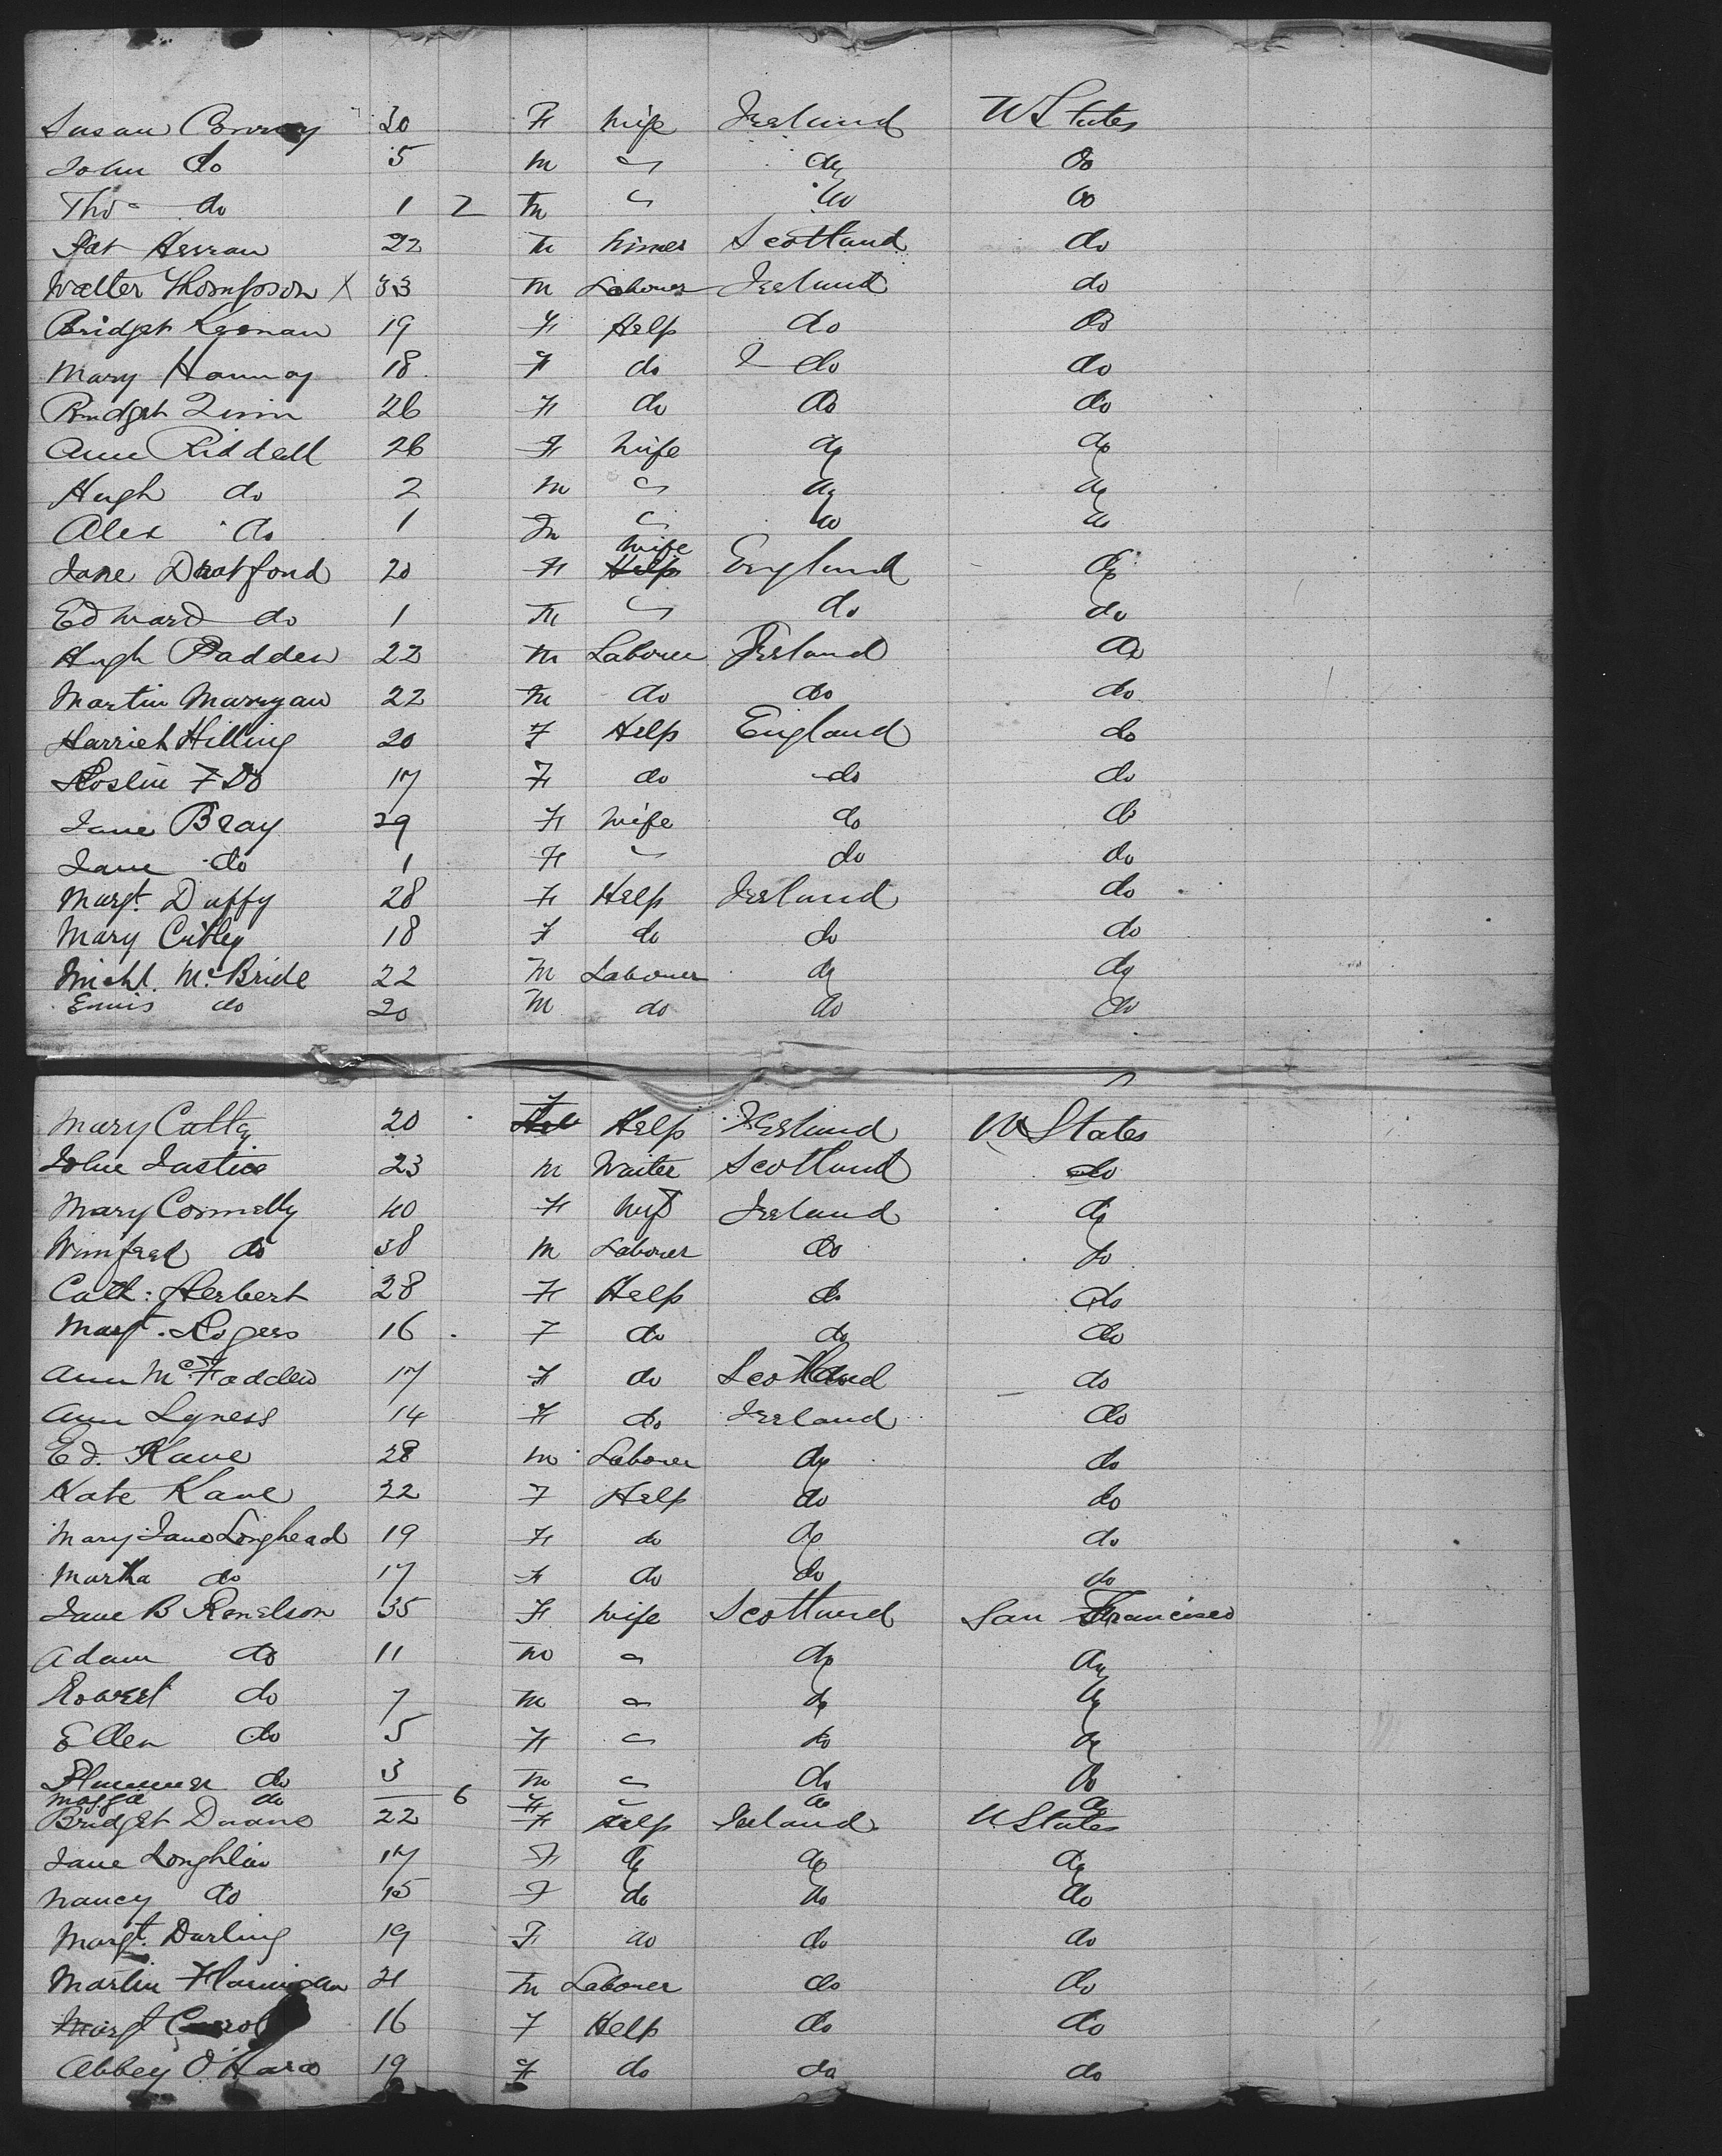 Susan Conroy 30 F Wife Ireland U States
John do 5 M " do do
Thos do 1 2 M " do do
Pat 22 M Miner Scotland do
Walter Thompson X 33 M Labourer Ireland do
Bridget Keenan 19 F Help do do
Mary Hannay 18 F do do do
Bridget Quinn 26 F do do do
Ann Riddell 26 F Wife do do
Hugh do 2 M " do do
Alex do 1 M " do do
Jane Dratford 20 F Wife England do
Edward do 1 M " do do
Hugh Padden 22 M Labourer Ireland do
Martin Marryan 22 M do do do
Harriet Hilling 20 F Help England do
Roslin F Do 17 F do do do
Jane Bray 29 F Wife do do
Jane do 1 F " do do
Margt. Duffy 28 F Help Ireland do
Mary 18 F do do do
Michl. McBride 22 M Labourer do do
Ennis do 20 M do do do
Mary 20 F Help Ireland U States
John Justice 23 M Waiter Scotland do
Mary Connelly 40 F Wife Ireland do
Winifred do 38 M Labourer do do
Cath: Herbert 28 F Help do do
Margt. Rogers 16 F do do do
Ann McFadden 17 F do Scotland do
Ann Lyness 14 F do Ireland do
Ed. Kane 28 M Labourer do do
Kate Kane 22 F Help do do
Mary Jane Loughead 19 F do do do
Martha do 17 F do do do
Jane B Renelson 35 F Wife Scotland San Francisco
Adam do 11 M " do do
Robert do 7 M " do do
Ellen do 5 F " do do
do 3 M " do do
Maggie do — 6 F " do do
Bridget Duane 22 F Help Ireland U States
Jane Loughlin 17 F do do do
Nancy do 15 F do do do
Margt. Darling 19 F do do do
Martin Flannigan 21 M Labourer do do
Margt Carrol 16 F Help do do
Abbey O'Hara 19 F do do do